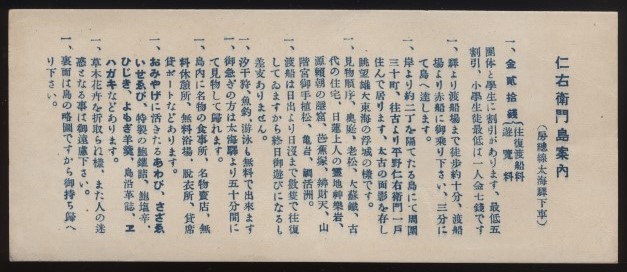 仁右衛門島案内
(房總線太海驛下車)
一、金貳拾錢{往復渡船料 遊覽料
團体と學生に割引があります、最低五
割引、小學生徒最低は一人金七錢です
一、驛より渡船場まで徒歩約十分、渡船
場より赤船に御乘り下さい、三分に
て島へ達します。
一、岸より約二丁を隔てたる島にて周圍
三十町、往古より平野仁右衛門一戸
住んで居ります、太古の面影を存し
眺望雄大東海の浮城の様です。
一、見物順序、奥庭、老松、大蘇鐵、古
代の住宅、日蓮上人の靈地神樂岩、
源頼朝の隱窟、芭蕉塚、辨財天、山
階宮御手植松、亀岩、鯛活洲。
一、渡船は日出より日沒まで數隻で往復
してゐますから終日御遊びになるも
差支ありません。
一、汐干狩、魚釣、游泳も無料で出來ます
一、御急ぎの方は太海驛より五十分間に
て見物して歸れます。
一、島内に名物の食事所、名物賣店、無
料休憩所、無料浴場、脱衣所、貸席
貸ボートなどあります。
一、おみやげに活きたるあわび、さざゑ
いせゑび、特製の鮑罐詰、鮑塩辛、
ひじき、よもぎ羊羹、島沿革誌、ヱ
ハガキなどあります。
一、草木花卉を折取られ様、また人の迷
惑となる事は御遠慮下さい。
一、裏面は島の略圖ですから御持ち歸へ
り下さい。